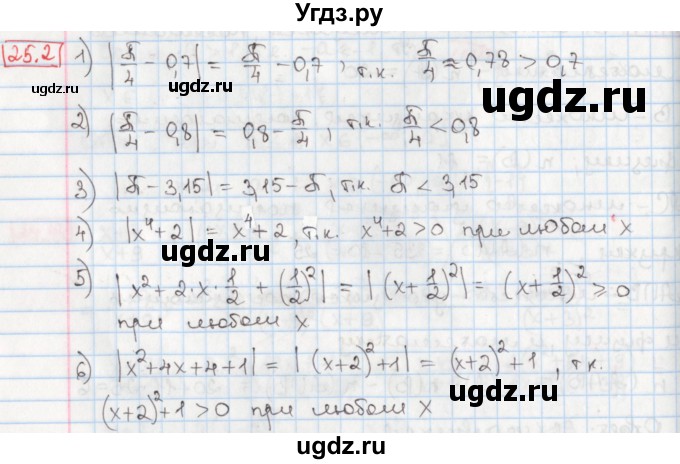 Угдз.ру
25.2 1) |π/4 - 0,7| = π/4 - 0,7, т.к. π/4 ≈ 0,78 > 0,7
ugdz.ru
ugdz.ru
2) |π/4 - 0,8| = 0,8 - π/4, т.к. π/4 < 0,8
ugdz.ru
3) |π - 3,15| = 3,15 - π, т.к. π < 3,15
4) |x⁴ + 2| = x⁴ + 2, т.к. x⁴ + 2 > 0 при любом x
ugdz.ru
5) |x² + 2·x·1/2 + (1/2)²| = |(x + 1/2)²| = (x + 1/2)² ≥ 0
при любом x
ugdz.ru
6) |x² + 4x + 4 + 1| = |(x+2)² + 1| = (x+2)² + 1, т.к.
(x+2)² + 1 > 0 при любом x
ugdz.ru
ugdz.ru